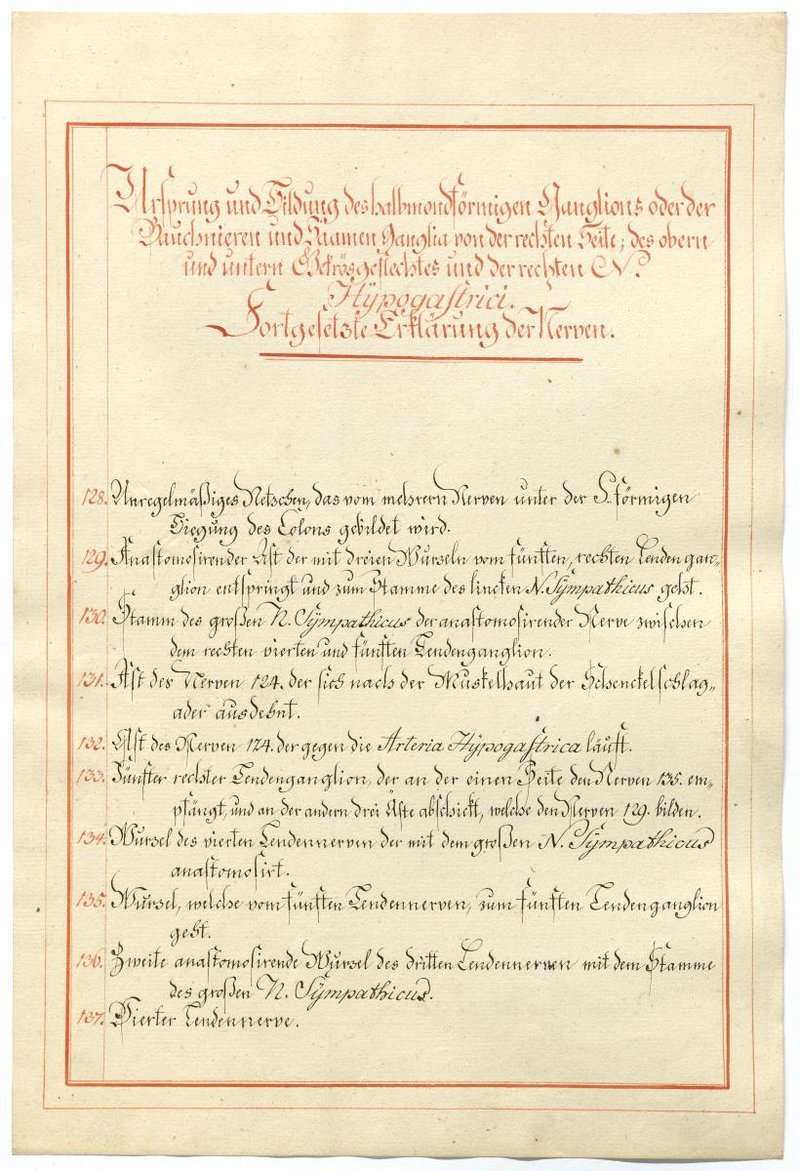 Ursprung und Bildung des halbmondförmigen Ganglions oder der
Bauchnieren und Saamen Ganglia von der rechten Seite; des obern
und untern Gekrösgeflechtes und der rechten N.
Hÿpogastrici.
Fortgesetzte Erklärung der Nerven.
128. Unregelmäßiges Netzchen, das vom mehrern Nerven unter der S. förmigen
Biegung des Colons gebildet wird.
129. Anastomosirender Ast der mit dreien Wurseln vom fünften, rechten Lendengan-
glion entspringt und zum Stamme des lincken N. Sÿmpathicus geht.
130. Stamm des großen N. Sÿmpathicus der anastomosirender Nerve zwischen
dem rechten vierten und fünften Lendenganglion.
131. Ast des Nerven 124. der sich nach der Muskelhaut der Schenckelschlag-
ader ausdehnt.
132. Ast des Nerven 124. der gegen die Arteria Hÿpogastrica läuft.
133. Fünfter rechter Lendenganglion, der an der einen Seite den Nerven 135. em-
pfängt, und an der andern drei Äste abschickt, welche den Nerven 129. bilden.
134. Wursel des vierten Lendennerven der mit dem großen N. Sÿmpathicus
anastomosirt.
135. Wursel, welche vom fünften Lendennerven, zum fünften Lendenganglion
geht.
136. Zweite anastomosirende Wursel des dritten Lendennerven mit dem Stamme
des großen N. Sÿmpathicus.
137. Vierter Lendennerve.